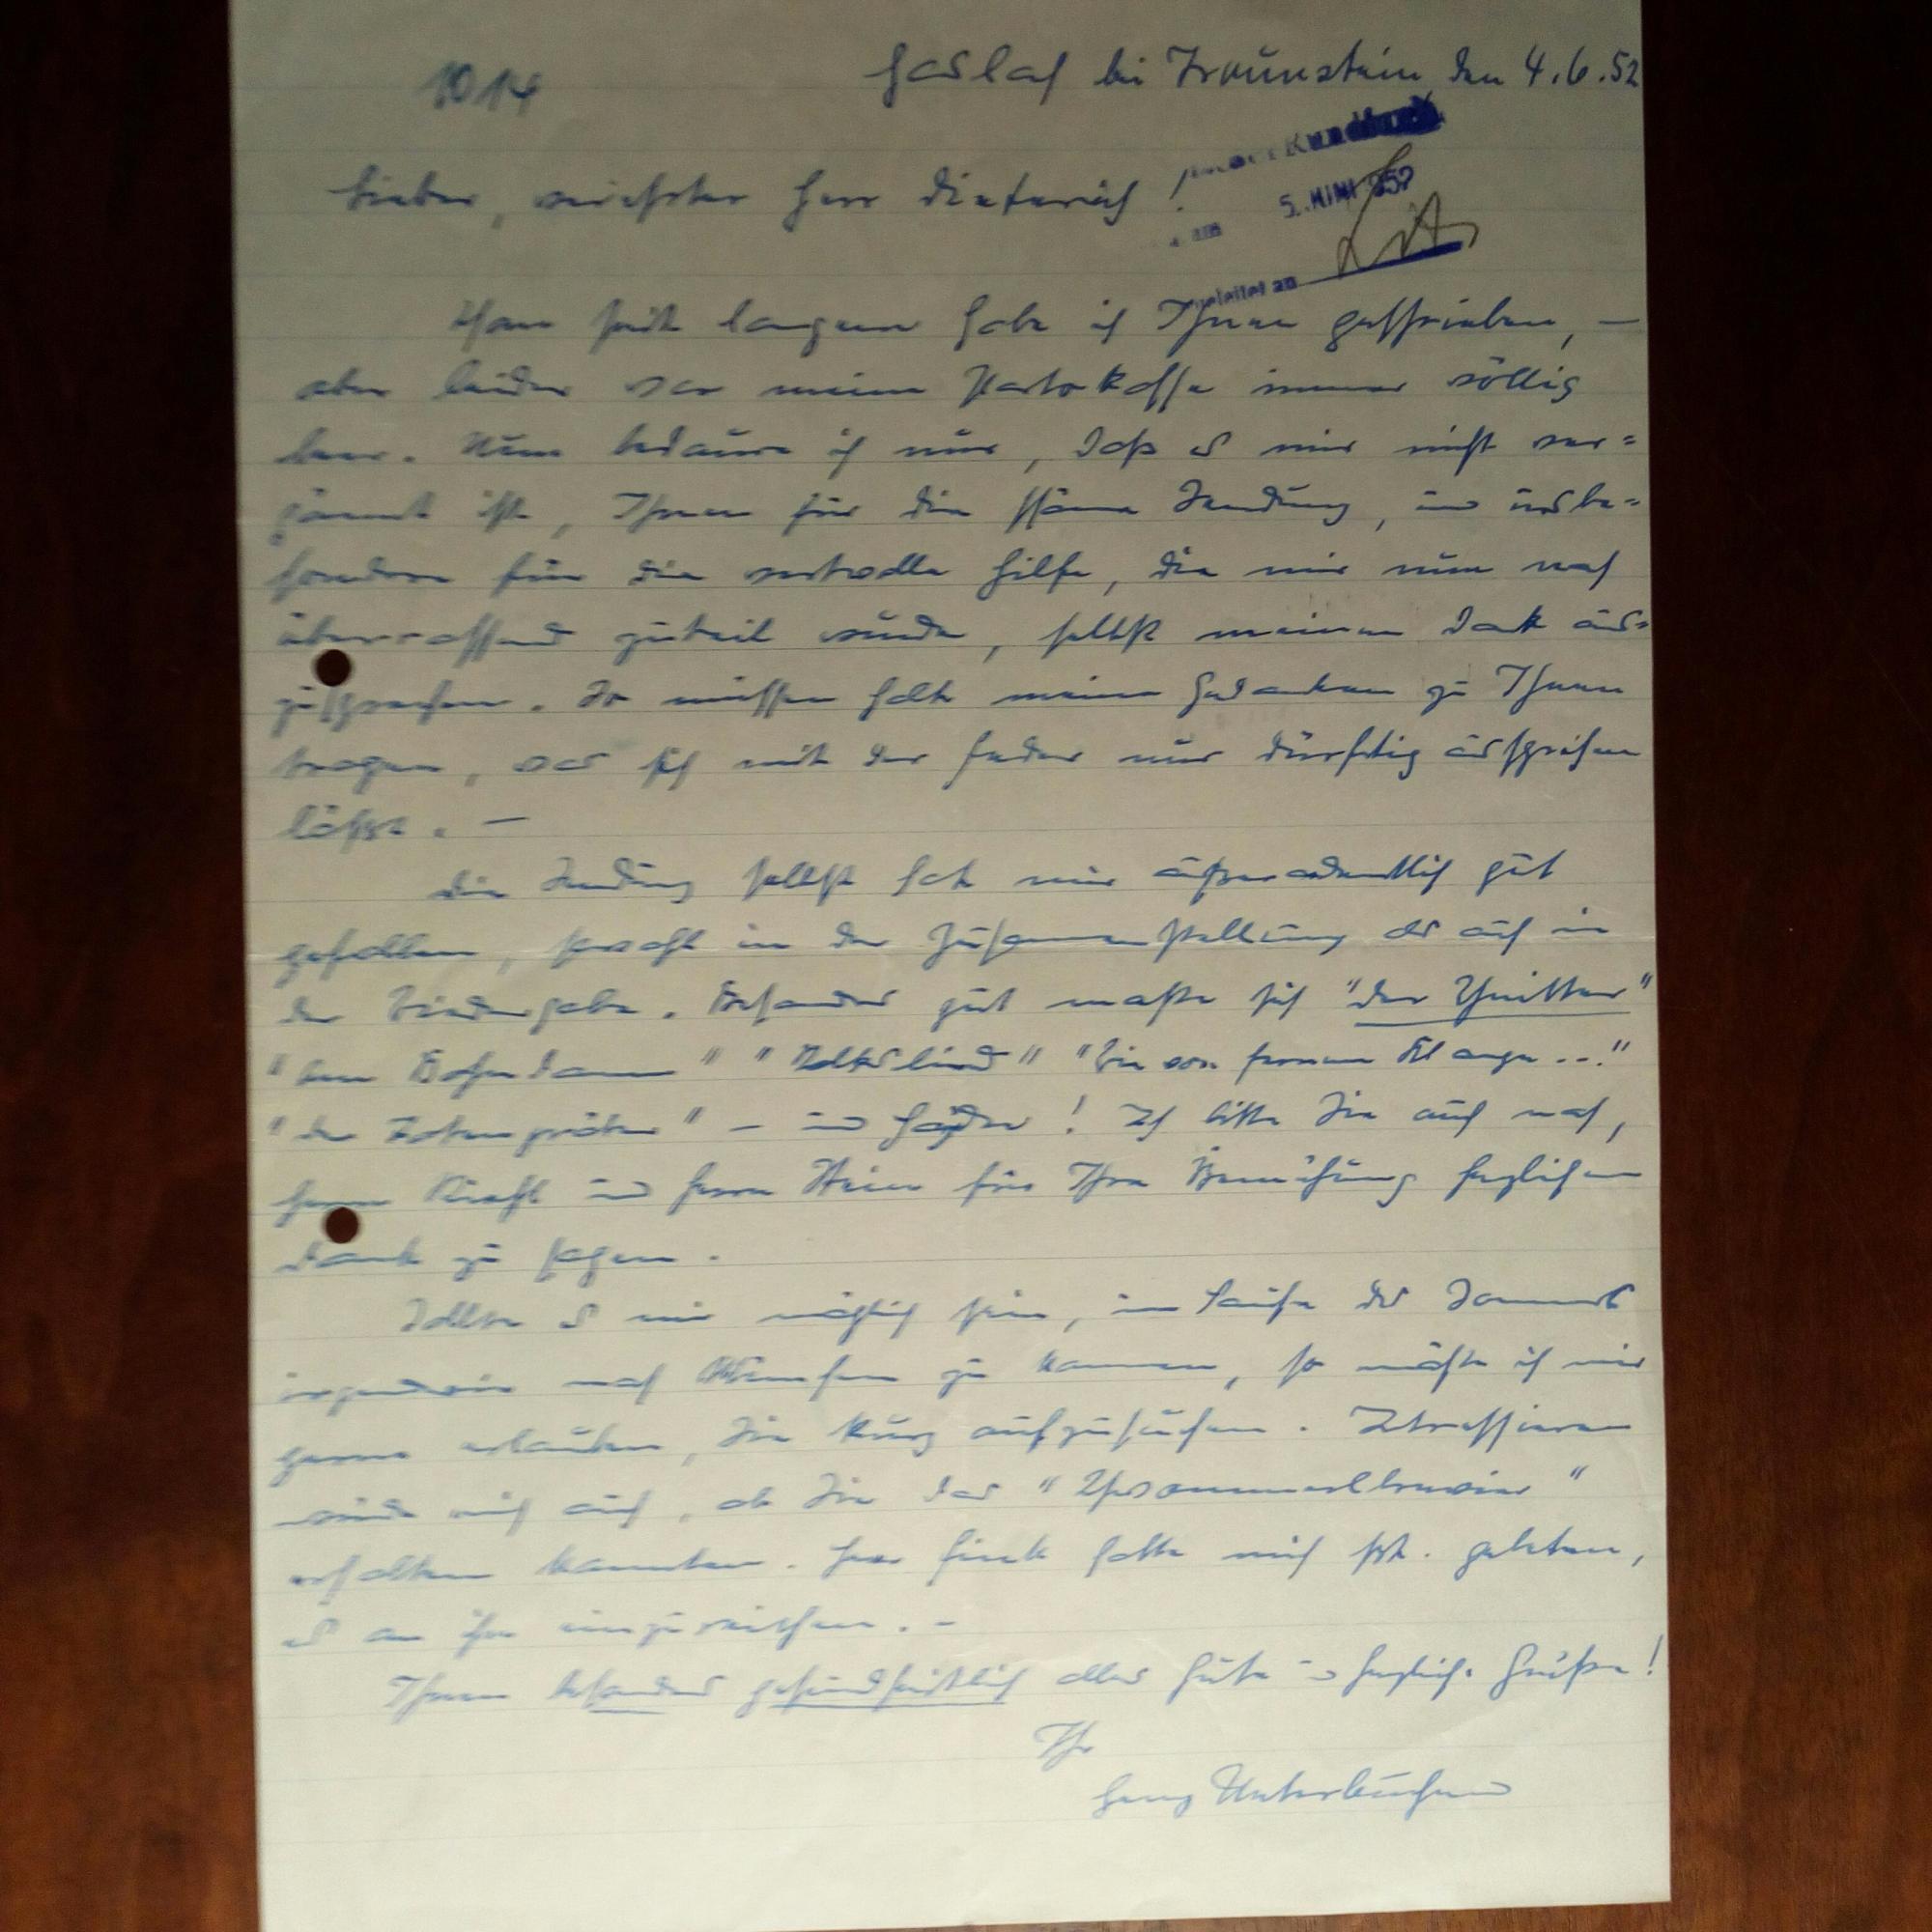 1014
Haslach bei Traunstein den 4.6.52
Rundfunk
5. JUNI 1952
zugeleitet an
Lieber, verehrter Herr Dieterich!
seit langem habe ich Ihnen geschrieben, –
aber leider war meine Portokasse immer völlig
leer. Nun bedaure ich nur, daß es mir nicht ver=
gönnt ist, Ihnen für die schöne Sendung, und insbe=
sondere für die wertvolle Hilfe, die mir nun noch
überraschend zuteil wurde, selbst meinen Dank aus=
zusprechen. So müssen halt meine Gedanken zu Ihnen
tragen, was sich mit der Feder nur dürftig aussprechen
lässt. –
Die Sendung selbst hat mir außerordentlich gut
gefallen, sowohl in der Zusammenstellung als auch in
der Wiedergabe. Besonders gut machte sich "Der Schnitter"
" "Volkslied" "Wie von fernem Klange..."
"Der Totengräber" – und ! Ich bitte Sie auch noch,
Herrn Kraft und Herrn für Ihre Bemühung herzlichen
Dank zu sagen.
Sollte es mir möglich sein, im Laufe des Sommers
irgendwie nach München zu kommen, so möchte ich mir
gerne erlauben, Sie kurz aufzusuchen. Interessieren
würde mich auch, ob Sie das "
erhalten konnten. Herr hatte mich gebeten,
es an ihn einzureichen. –
Ihnen besonders gesundheitlich alles Gute u. herzliche Grüße!
Ihr
Georg Unterbuchner